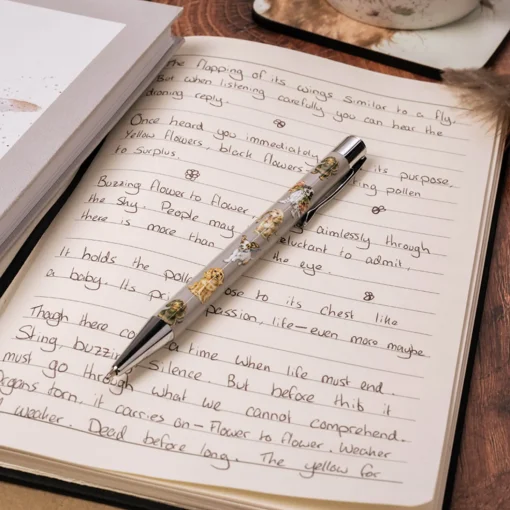 The flapping of its wings similar to a fly.
But when listening carefully you can hear the
droning reply.
Once heard you immediately its purpose.
Yellow flowers, black flowers pollen
to surplus.
Buzzing flower to flower, aimlessly through
the sky. People may reluctant to admit,
there is more than the eye.
It holds the close to its chest like
a baby. Its passion, life—even more maybe
Thagh there a time when life must end.
Sting, buzzing, silence. But before thib it
must go through what we cannot comprehend.
Organs torn, it carries on—Flower to flower. Weaker
weaker. Dead before long. The yellow for